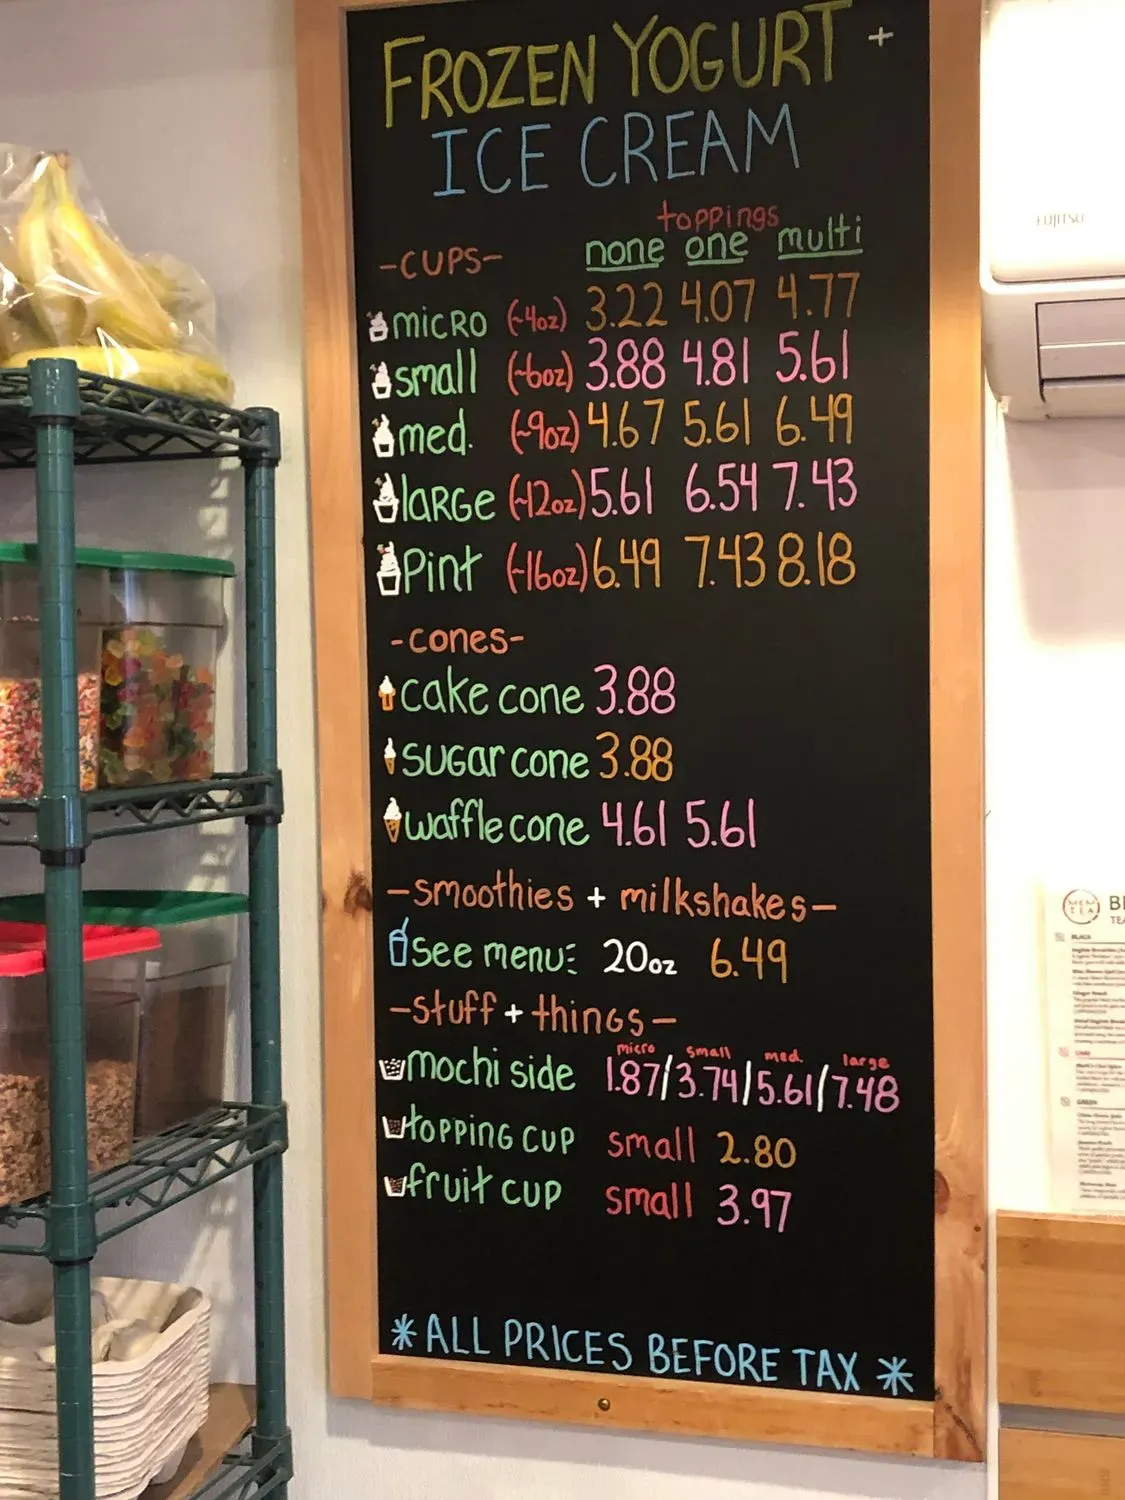 FROZEN YOGURT +
ICE CREAM
toppings
-CUPS- none one multi
micro (~4oz) 3.22 4.07 4.77
small (~6oz) 3.88 4.81 5.61
med. (~9oz) 4.67 5.61 6.49
large (~12oz) 5.61 6.54 7.43
Pint (~16oz) 6.49 7.43 8.18
-cones-
cake cone 3.88
sugar cone 3.88
waffle cone 4.61 5.61
-smoothies + milkshakes-
see menu: 20oz 6.49
-stuff + things-
micro small med. large
mochi side 1.87/3.74/5.61/7.48
topping cup small 2.80
fruit cup small 3.97
*ALL PRICES BEFORE TAX*
FUJITSU
MEM
TEA
BLACK
GREEN